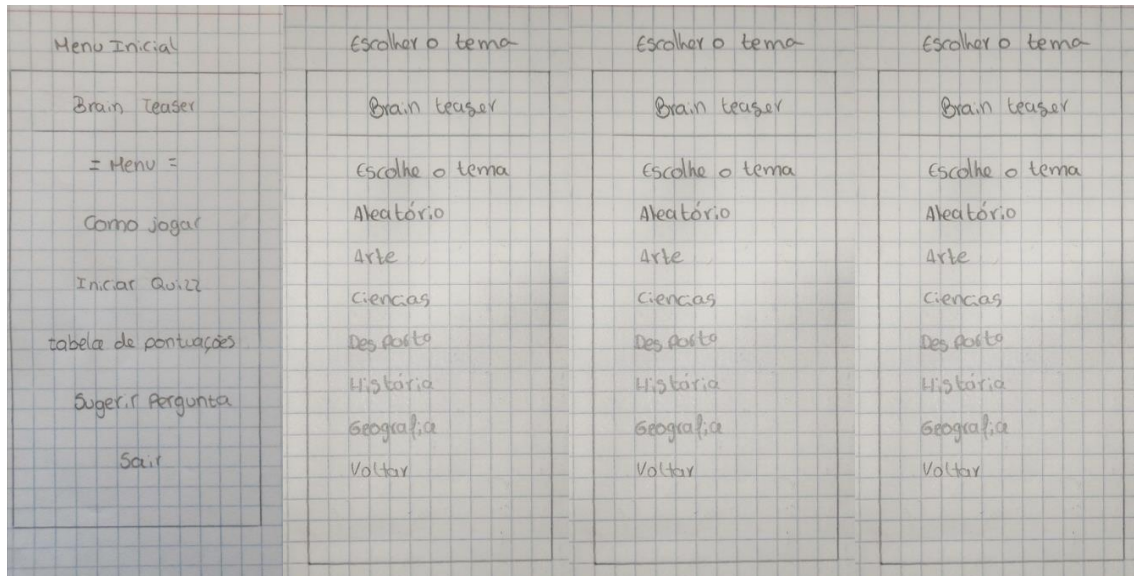 Menu Inicial
Brain Teaser
= Menu =
Como jogar
Iniciar Quizz
tabela de pontuações
Sugerir Pergunta
Sair
Escolher o tema
Brain teaser
Escolhe o tema
Aleatório
Arte
Ciencias
Desporto
História
Geografia
Voltar
Escolher o tema
Brain teaser
Escolhe o tema
Aleatório
Arte
Ciencias
Desporto
História
Geografia
Voltar
Escolher o tema
Brain teaser
Escolhe o tema
Aleatório
Arte
Ciencias
Desporto
História
Geografia
Voltar